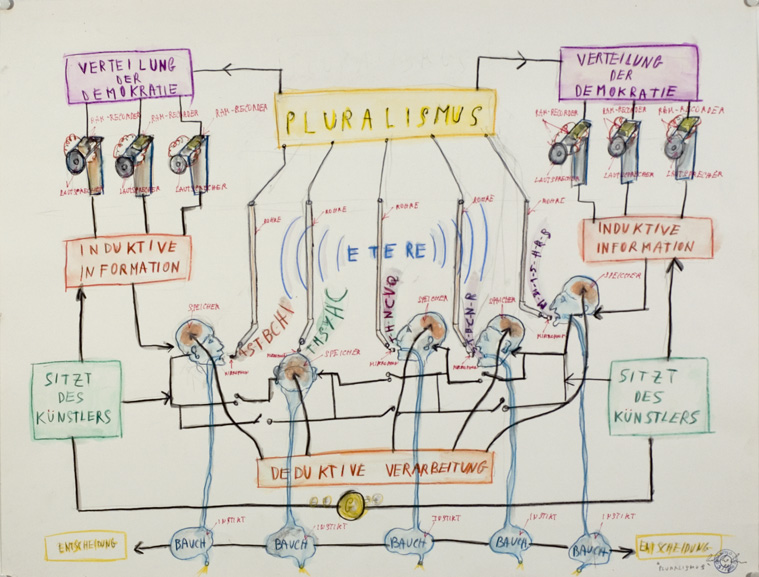 VERTEILUNG
DER
DEMOKRATIE
PLURALISMUS
VERTEILUNG
DER
DEMOKRATIE
RAM-RECORDER
RAM-RECORDER
RAM-RECORDER
LAUTSPRECHER
LAUTSPRECHER
LAUTSPRECHER
RAM-RECORDER
RAM-RECORDER
RAM-RECORDER
LAUTSPRECHER
LAUTSPRECHER
LAUTSPRECHER
ROHRE
ROHRE
ROHRE
ROHRE
ROHRE
INDUKTIVE
INFORMATION
ETERE
INDUKTIVE
INFORMATION
SPEICHER
STBCHI
TMSYHC
HNCVQ
SPEICHER
SPEICHER
SPEICHER
SPEICHER
MIKROFON
MIKROFON
MIKROFON
SITZT
DES
KÜNSTLERS
SITZT
DES
KÜNSTLERS
DEDUKTIVE VERARBEITUNG
G
INSTIKT
INSTIKT
INSTIKT
INSTIKT
INSTIKT
ENTSCHEIDUNG
BAUCH
BAUCH
BAUCH
BAUCH
BAUCH
ENTSCHEIDUNG
"PLURALISMUS"